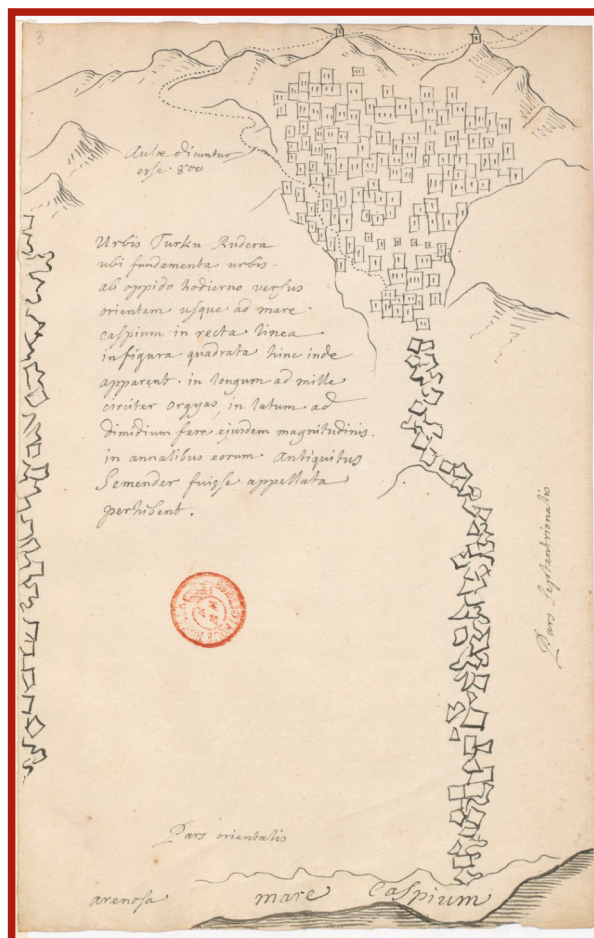 8
Aulæ dicuntur
esse 800
Urbis Turku Rudera
ubi fundamenta urbis
ab oppido hodierno versus
orientem usque ad mare
caspium in recta linea
in figura quadrata hinc inde
apparent. in longum ad mille
circiter orgyas, in latum ad
dimidium fere ejusdem magnitudinis.
in annalibus eorum Antiquitus
Semender fuisse appellata
perhibent.
Pars Septentrionalis
Pars orientalis
arenosa
mare Caspium